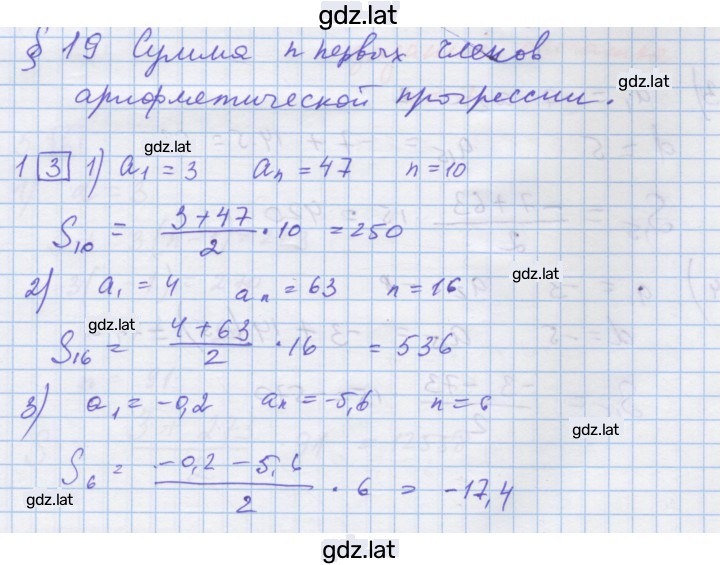 gdz.lat
§ 19 Сумма n первых членов
gdz.lat
арифметической прогрессии.
gdz.lat
1 [3] 1) a₁ = 3 aₙ = 47 n = 10
S₁₀ = (3 + 47)/2 · 10 = 250
gdz.lat
2) a₁ = 4 aₙ = 63 n = 16
gdz.lat
S₁₆ = (4 + 63)/2 · 16 = 536
3) a₁ = -0,2 aₙ = -5,6 n = 6
gdz.lat
S₆ = (-0,2 - 5,6)/2 · 6 = -17,4
gdz.lat
gdz.lat